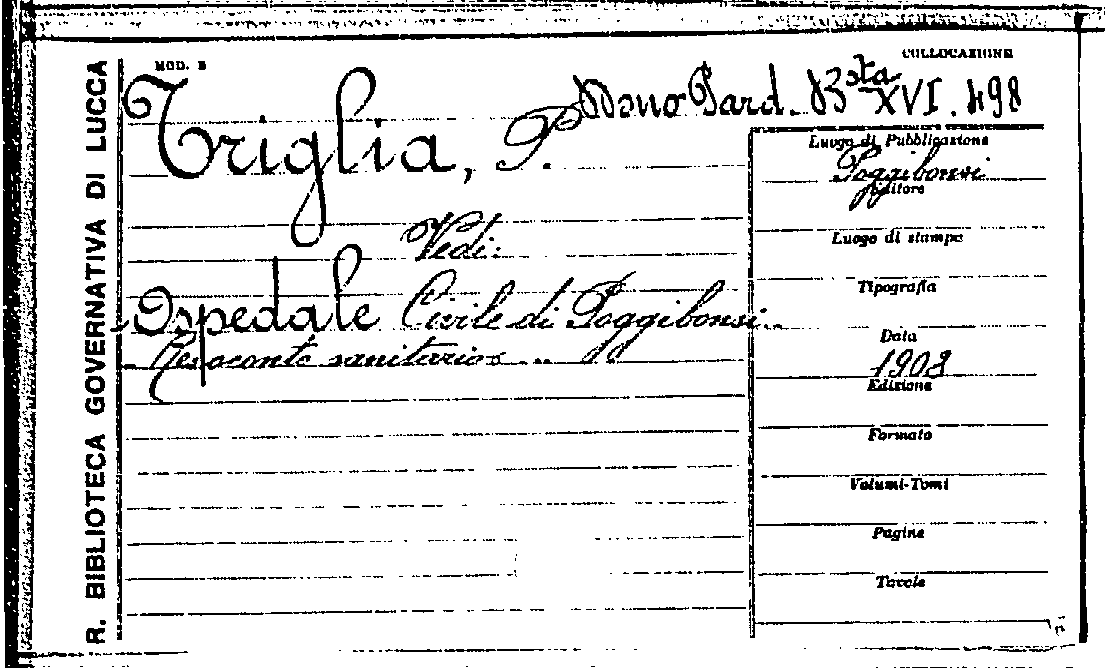 R. BIBLIOTECA GOVERNATIVA DI LUCCA
MOD. B
COLLOCAZIONE
Dono Pard. Bsta XVI. 498
Triglia, P.
Vedi:
Ospedale Civile di Poggibonsi..
Resoconto sanitario ...
Luogo di Pubblicazione
Poggibonsi
Editore
Luogo di stampa
Tipografia
Data
1903
Edizione
Formato
Volumi-Tomi
Pagine
Tavole